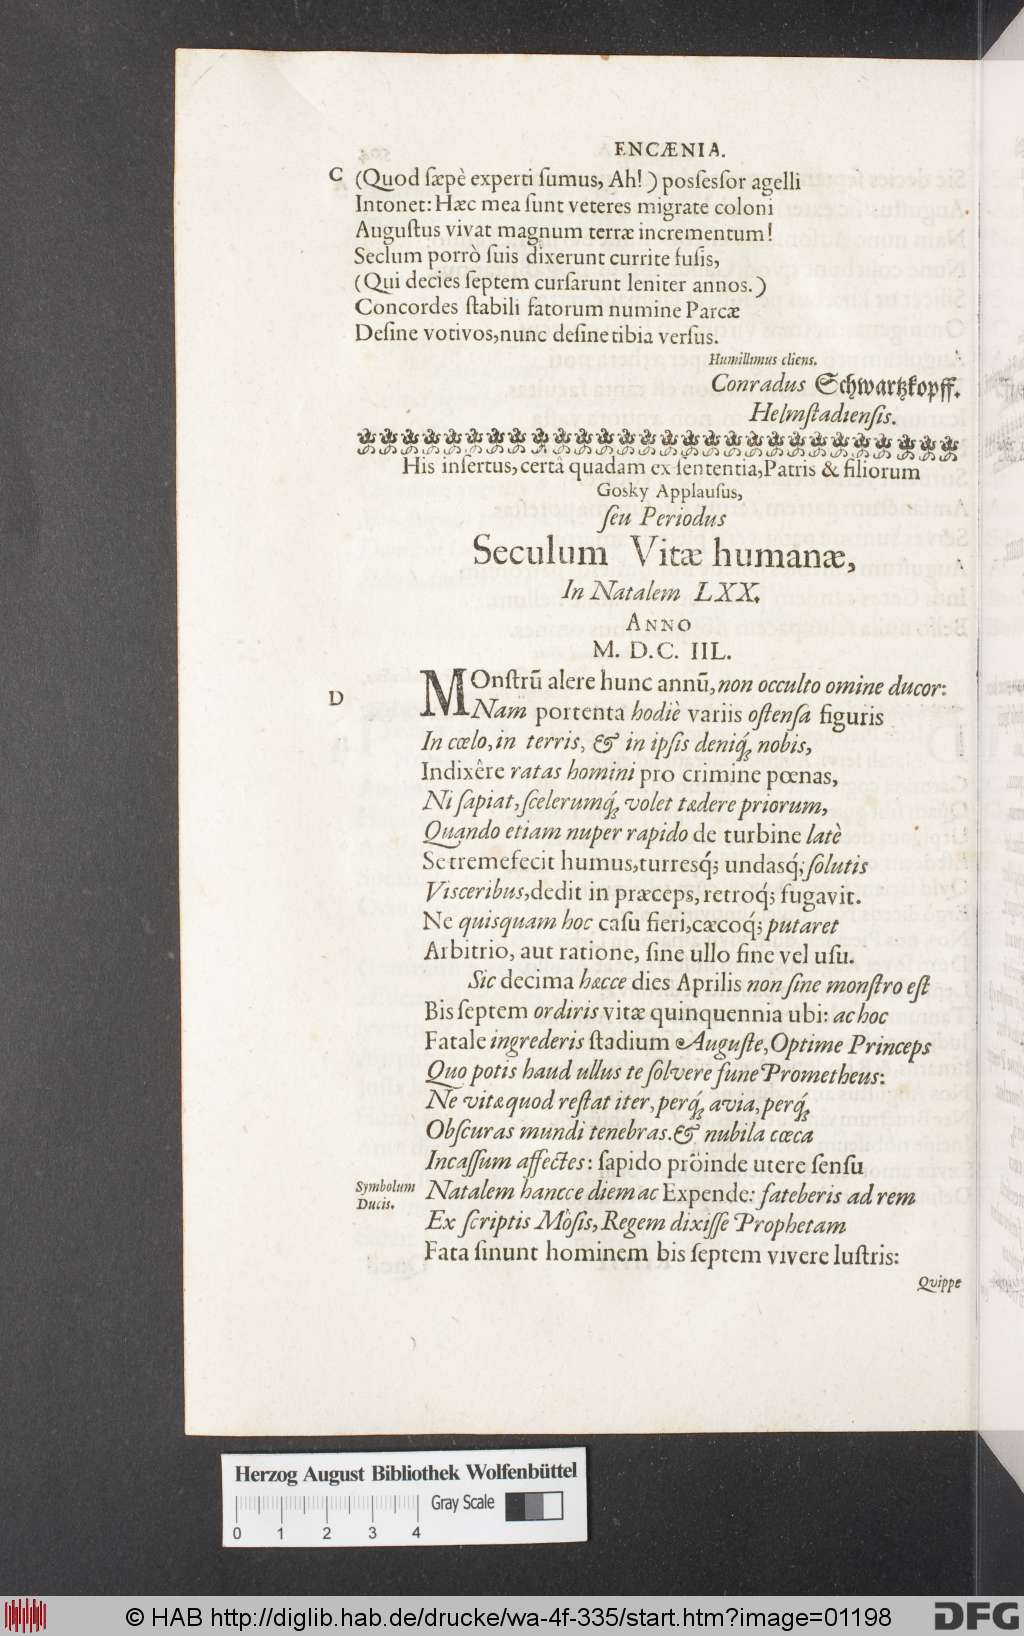 ENCÆNIA.
C (Quod ſæpè experti ſumus, Ah!) poſſeſſor agelli
Intonet: Hæc mea ſunt veteres migrate coloni
Auguſtus vivat magnum terræ incrementum!
Seclum porrò ſuis dixerunt currite fuſis,
(Qui decies ſeptem curſarunt leniter annos.)
Concordes ſtabili fatorum numine Parcæ
Deſine votivos, nunc deſine tibia verſus.
Humillimus cliens.
Conradus Schwartzkopff.
Helmſtadienſis.
His inſertus, certâ quadam ex ſententia, Patris & filiorum
Gosky Applauſus,
ſeu Periodus
Seculum Vitæ humanæ,
In Natalem LXX.
ANNO
M. D. C. IIL.
D MOnſtrũ alere hunc annũ, non occulto omine ducor:
Nam portenta hodiè variis oſtenſa figuris
In cœlo, in terris, & in ipſis deniq́; nobis,
Indixêre ratas homini pro crimine pœnas,
Ni ſapiat, ſcelerumq́; volet tædere priorum,
Quando etiam nuper rapido de turbine latè
Se tremefecit humus, turresq́; undasq́; ſolutis
Viſceribus, dedit in præceps, retroq́; fugavit.
Ne quisquam hoc caſu fieri, cæcoq́; putaret
Arbitrio, aut ratione, ſine ullo fine vel uſu.
Sic decima hæcce dies Aprilis non ſine monſtro eſt
Bis ſeptem ordiris vitæ quinquennia ubi: ac hoc
Fatale ingrederis ſtadium Auguſte, Optime Princeps
Quo potis haud ullus te ſolvere fune Prometheus:
Ne vitæ quod reſtat iter, perq́; avia, perq́;
Obſcuras mundi tenebras. & nubila cœca
Incaſſum affectes: ſapido pröinde utere ſenſu
Symbolum
Ducis.
Natalem hancce diem ac Expende: fateberis ad rem
Ex ſcriptis Möſis, Regem dixiſſe Prophetam
Fata ſinunt hominem bis ſeptem vivere luſtris:
Quippe
Herzog August Bibliothek Wolfenbüttel
Gray Scale
0 1 2 3 4
© HAB http://diglib.hab.de/drucke/wa-4f-335/start.htm?image=01198
DFG